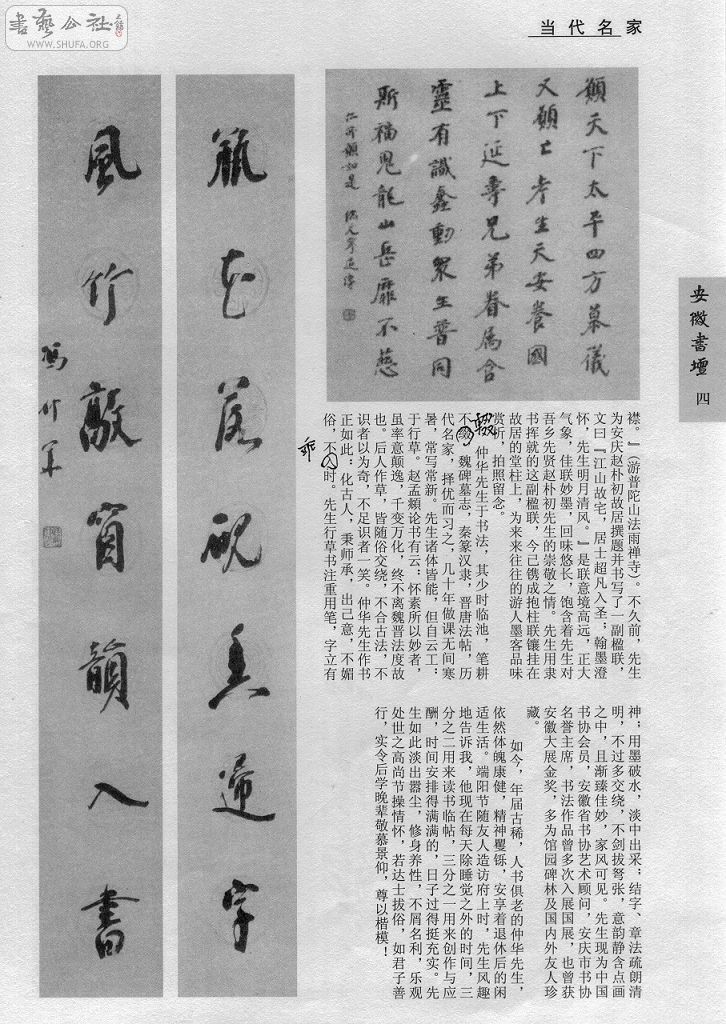 書艺公社
WWW.SHUFA.ORG
当代名家
安徽書壇 四
願天下太平四方慕儀
又願亡考生天安養國
上下延壽兄弟眷属含
靈有識蠢動眾生普同
斯福
瓶花落砚香逕字
風竹敲窗韻入書
馮仲華
襟。』（游普陀山法雨禅寺）。不久前，先生
为安庆赵朴初故居撰题并书写了一副楹联，
文曰『江山故宅，居士超凡入圣；翰墨澄
怀，先生明月清风。』是联意境高远，正大
气象，佳联妙墨，回味悠长，饱含着先生对
吾乡先贤赵朴初先生的崇敬之情。先生用隶
书挥就的这副楹联，今已镌成抱柱联镶挂在
故居的堂柱上，为来来往往的游人墨客品味
赏析，拍照留念。
仲华先生于书法，其少时临池，笔耕
不缀，魏碑墓志，秦篆汉隶，晋唐法帖，历
代名家，择优而习之，几十年做课无间寒
暑，常写常新。先生诸体皆能，但自云工；
于行草。赵孟頫论书有云：怀素所以妙者，
虽率意颠逸，千变万化，终不离魏晋法度故
也。后人作草，皆随俗交绕，不合古法，不
识者以为奇，不足识者一笑。仲华先生作书
正如此：化古人，秉师承，出己意，不媚
俗，不入时。先生行草书注重用笔，字立有
辍
乖
神；用墨破水，淡中出采；结字、章法疏朗清
明，不过多交绕，不剑拔弩张，意韵静含点画
之中，且渐臻佳妙，家风可见。先生现为中国
书协会员，安徽省书协艺术顾问，安庆市书协
名誉主席，书法作品曾多次入展国展，也曾获
安徽大展金奖，多为馆园碑林及国内外友人珍
藏。
如今，年届古稀，人书俱老的仲华先生，
依然体魄康健，精神矍铄，安享着退休后的闲
适生活。端阳节随友人造访府上时，先生风趣
地告诉我，他现在每天除睡觉之外的时间，三
分之二用来读书临帖，三分之一用来创作与应
酬，时间安排得满满的，日子过得挺充实。先
生如此淡出嚣尘，修身养性，不屑名利，乐观
处世之高尚节操情怀，若达士拔俗，如君子善
行，实令后学晚辈敬慕景仰，尊以楷模！